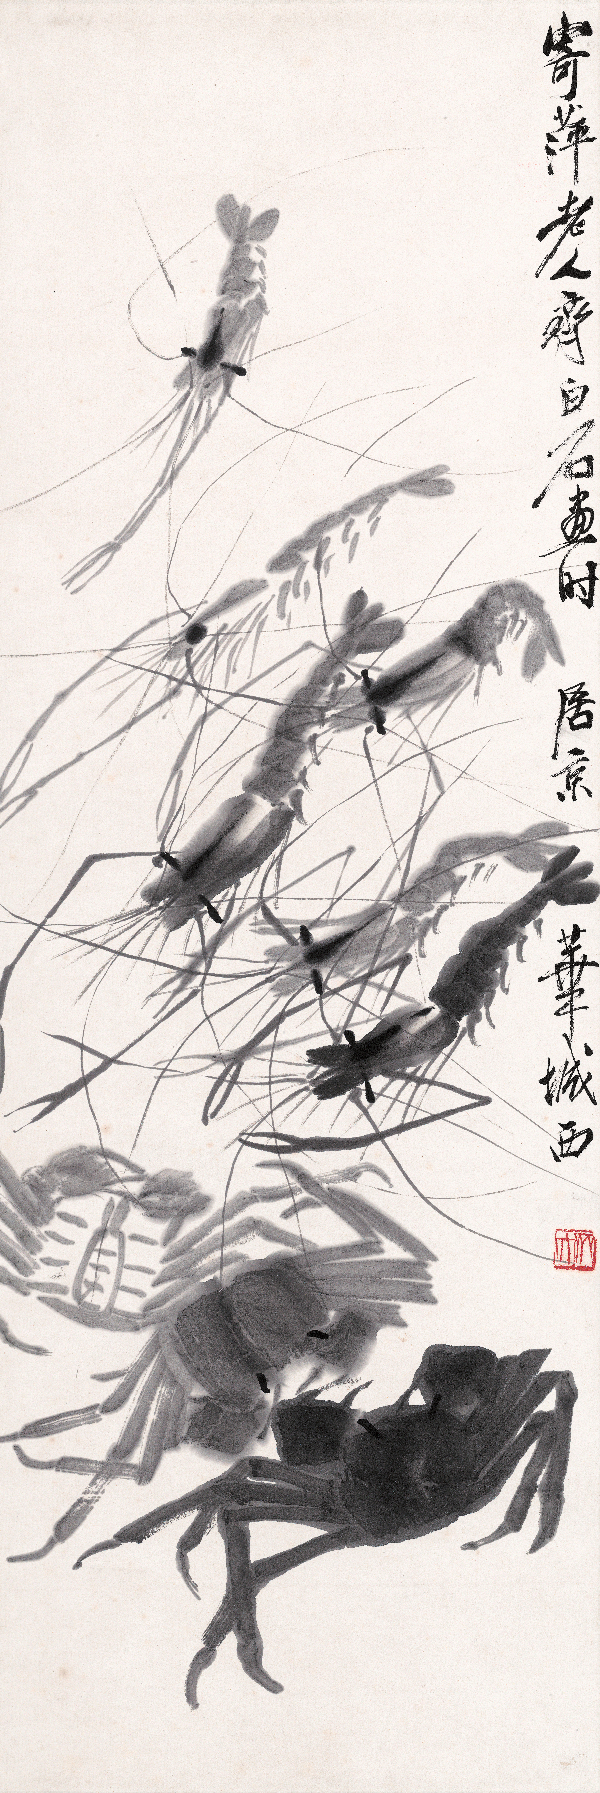 寄萍老人齊白石画时居京華城西